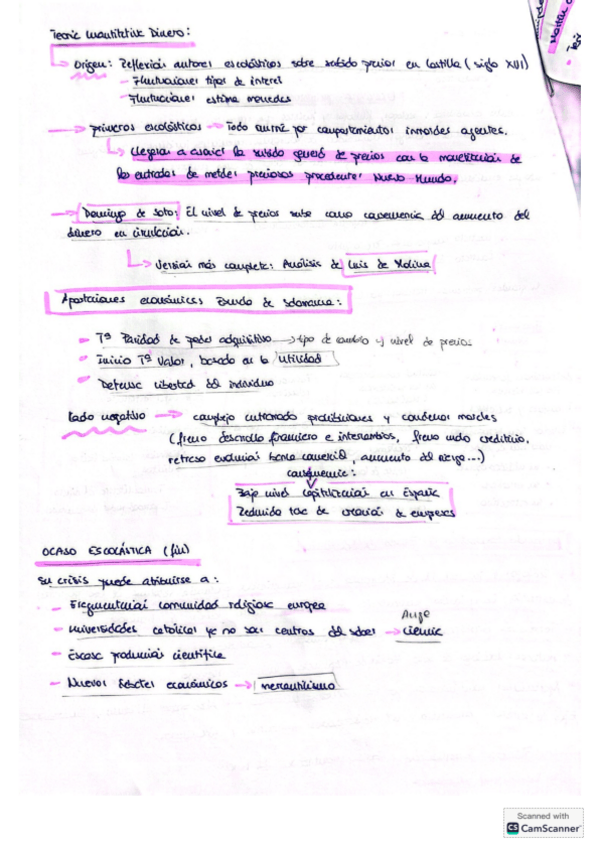 Teoría Cuantitativa Dinero:
Origen: Reflexión autores escolásticos sobre subida precios en Castilla (siglo XVI)
- Fluctuaciones tipos de interés
- Fluctuaciones estima monedas
Primeros escolásticos → Todo por comportamientos inmorales agentes.
Llegan a asociar la subida general de precios con la de
las entradas de metales preciosos procedentes Nuevo Mundo.
→ Domingo de Soto: El nivel de precios sube como consecuencia del aumento del
dinero en circulación.
Versión más completa: Análisis de Luis de Molina
Aportaciones económicas Escuela de Salamanca:
- Tª Paridad de poder adquisitivo → tipo de cambio y nivel de precios
- Inicio Tª Valor, basado en la utilidad
- Defensa libertad del individuo
Lado negativo → complejo entramado prohibiciones y condenas morales
(freno desarrollo financiero e intercambios, freno crediticio,
retraso evolución banca comercial, aumento del riesgo...)
consecuencia:
Bajo nivel capitalización en España
Reducida tasa de creación de empresas
OCASO ESCOLÁSTICA (fin)
Su crisis puede atribuirse a:
- Fragmentación comunidad religiosa europea
Auge
- Universidades católicas ya no son centros del saber → ciencia
- Escasa producción científica
- Nuevos económicos → mercantilismo
Scanned with
CS CamScanner